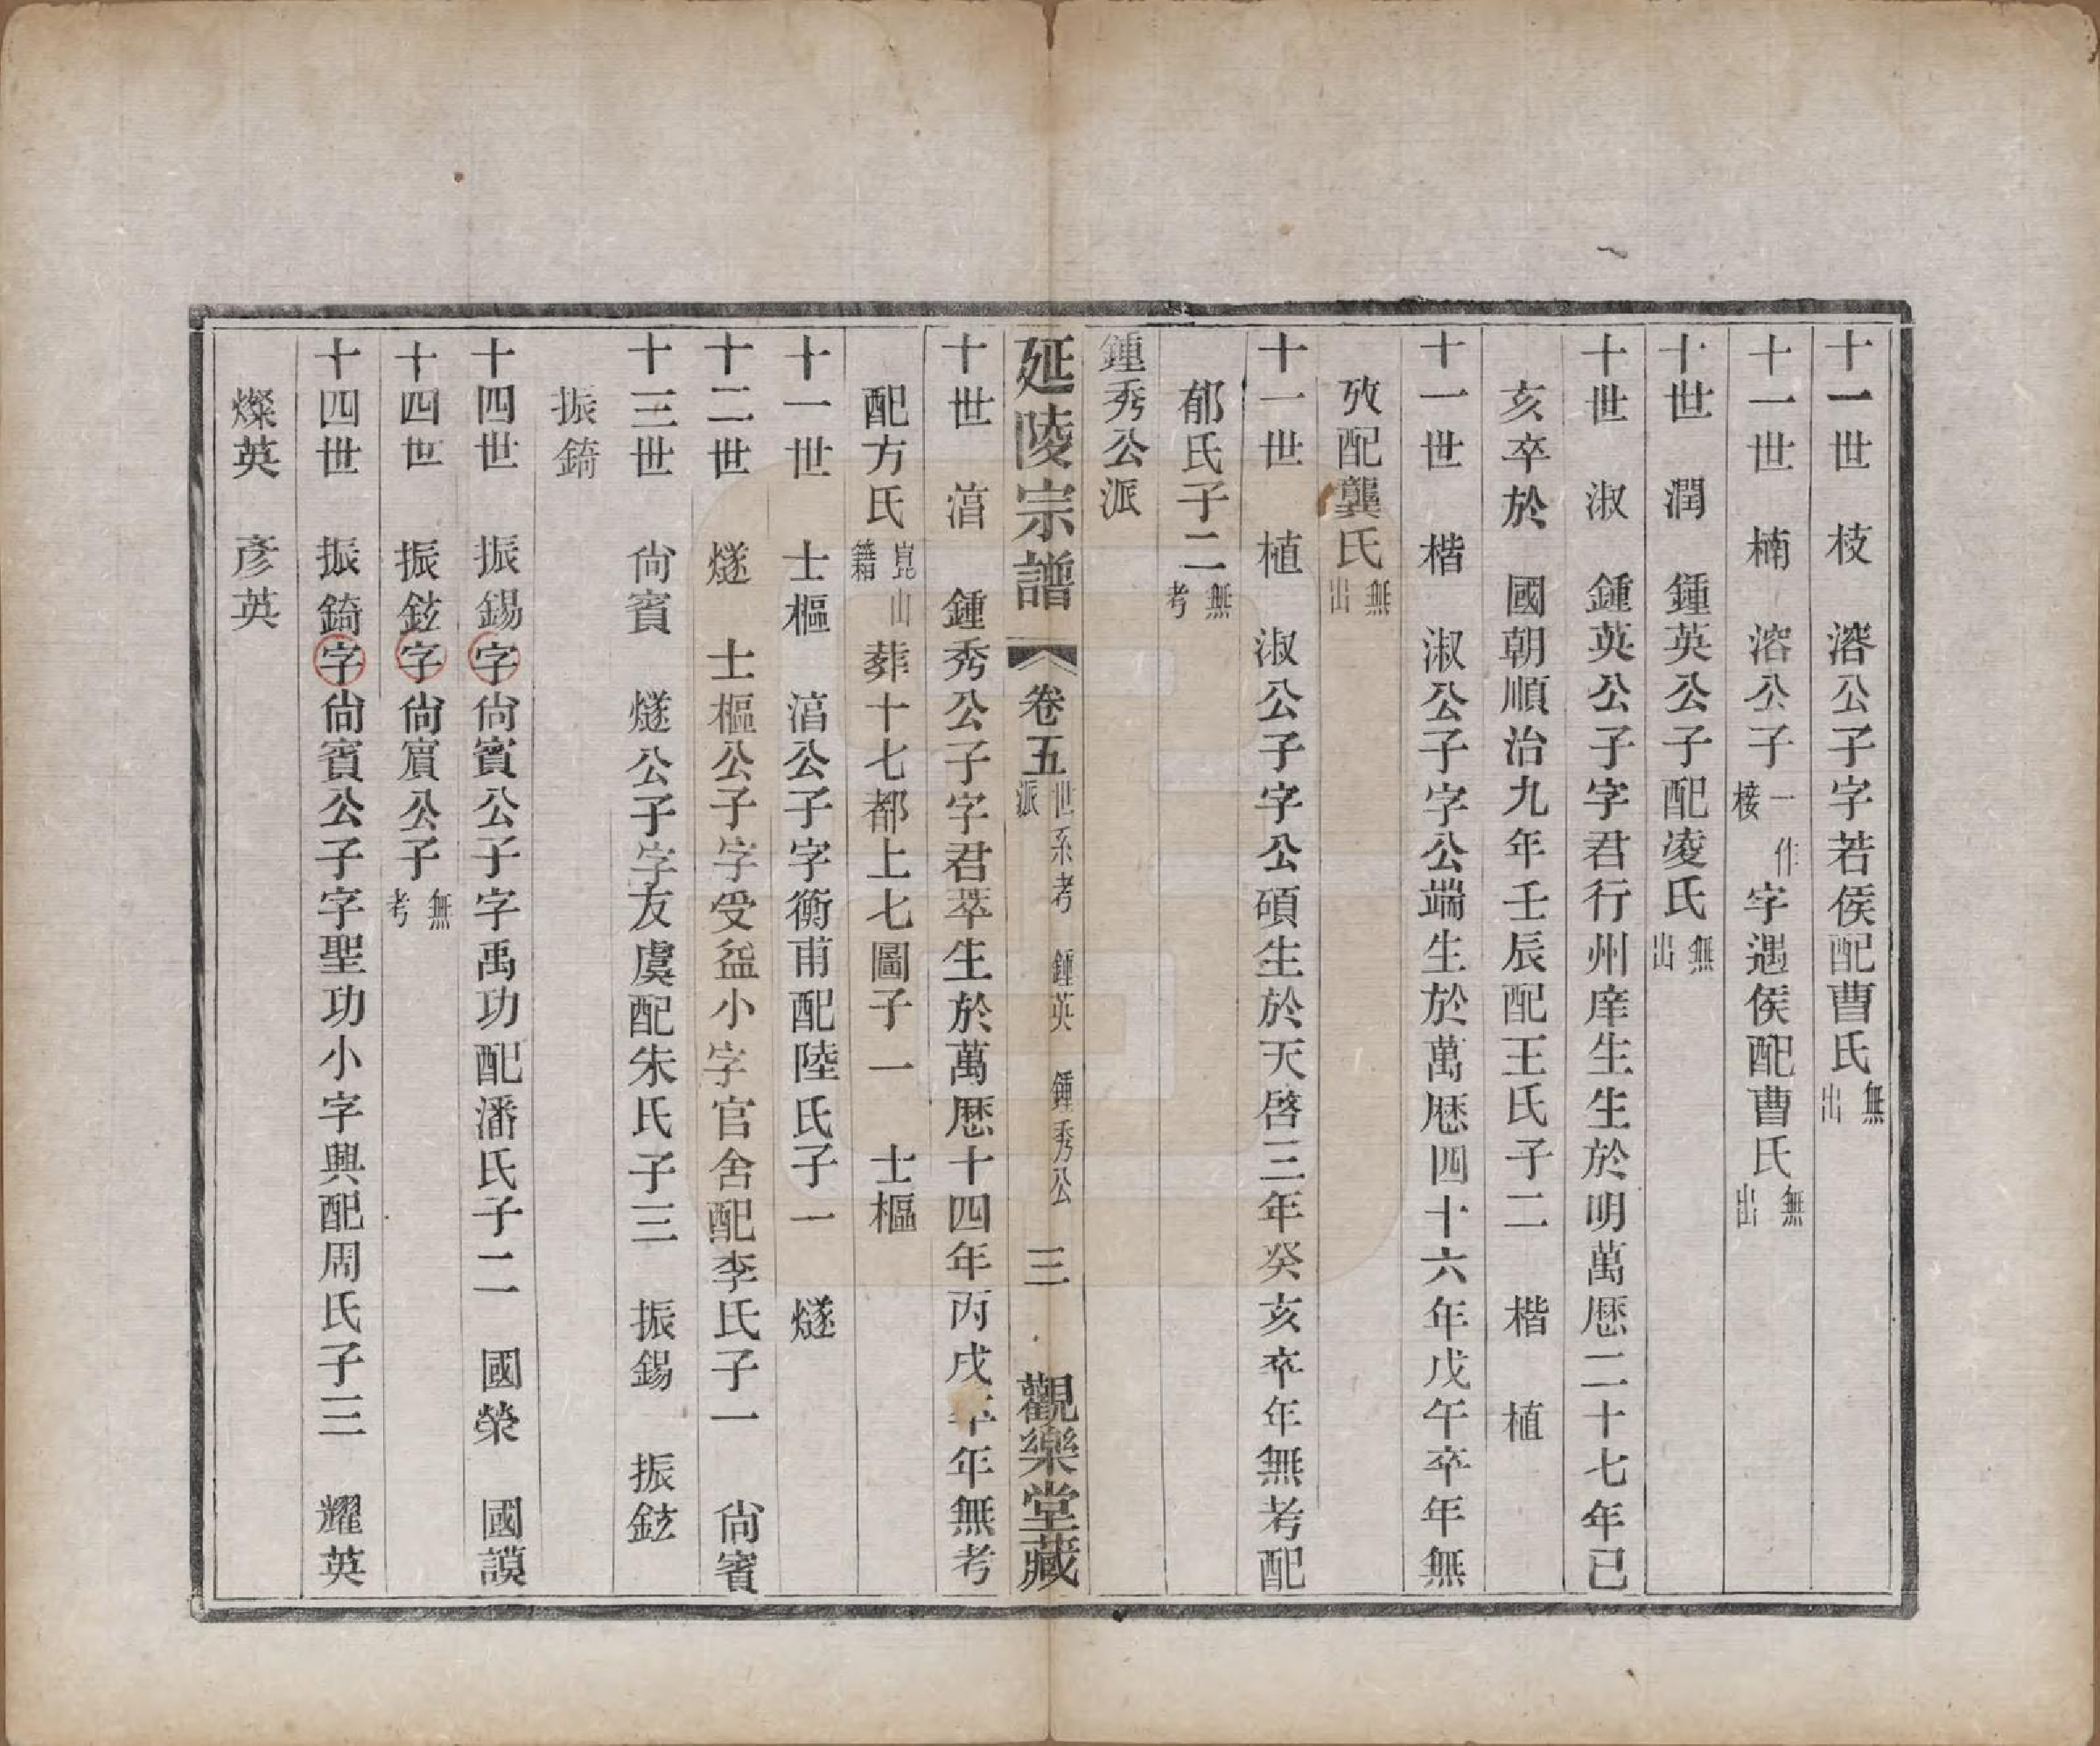 十一世　枝　溶公子字若侯配曹氏無出
十一世　楠　溶公子一作椄字遇侯配曹氏無出
十世　潤　鍾英公子配凌氏無出
十世　淑　鍾英公子字君行州庠生生於明萬厯二十七年已
亥卒於　國朝順治九年壬辰配王氏子二　楷　植
十一世　楷　淑公子字公端生於萬厯四十六年戊午卒年無
攷配龔氏無出
十一世　植　淑公子字公碩生於天啓三年癸亥卒年無考配
郁氏子二無考
鍾秀公派
延陵宗譜　卷五世系考　鍾英　鍾秀公派　三　觀樂堂藏
十世　湻　鍾秀公子字君萃生於萬厯十四年丙戌卒年無考
配方氏崑山籍葬十七都上七圖子一　士樞
十一世　士樞　湻公子字衡甫配陸氏子一　燧
十二世　燧　士樞公子字受益小字官舍配李氏子一　尙賓
十三世　尙賓　燧公子字友虞配朱氏子三　振錫　振鉉
振錡
十四世　振錫字尙賓公子字禹功配潘氏子二　國榮　國謨
十四世　振鉉字尙賓公子無考
十四世　振錡字尙賓公子字聖功小字興配周氏子三　耀英
燦英　彥英